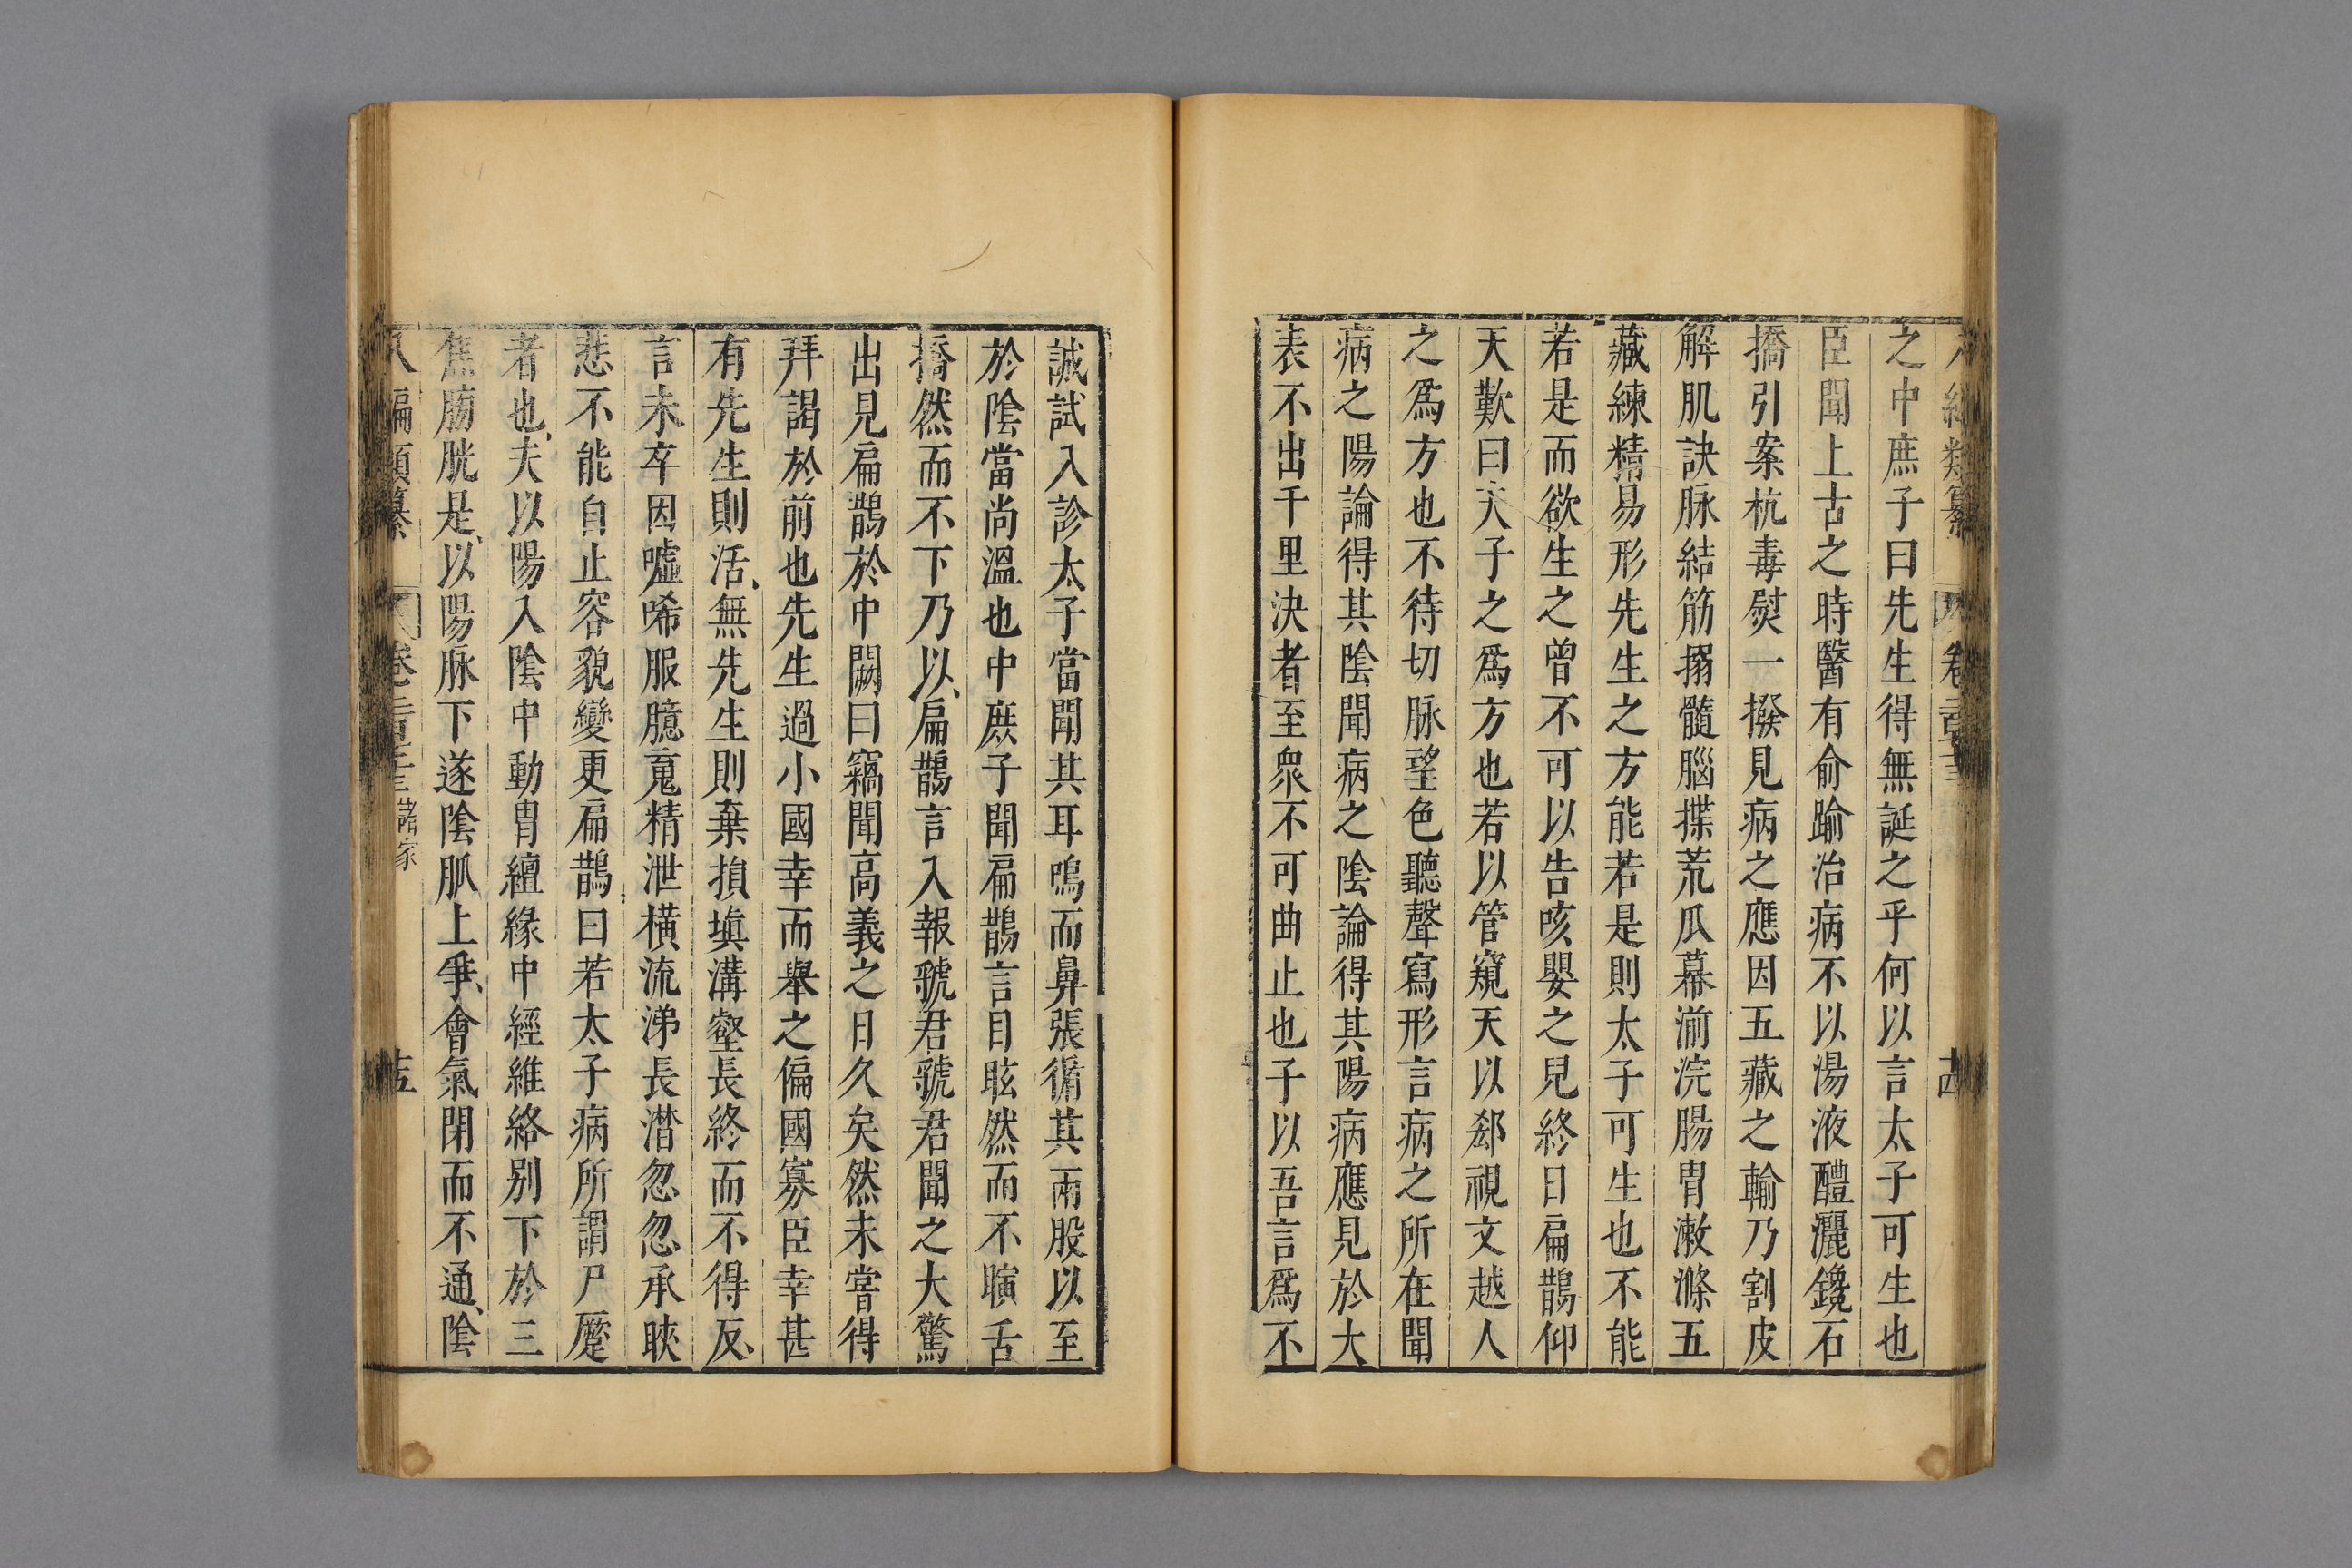 之中庶子曰先生得無誕之乎何以言太子可生也
臣聞上古之時醫有俞跗治病不以湯液醴灑鑱石
撟引案杭毒熨一撥見病之應因五藏之輸乃割皮
解肌訣脉結筋搦髓腦揲荒爪幕湔浣腸胃漱滌五
藏練精易形先生之方能若是則太子可生也不能
若是而欲生之曾不可以告咳嬰之兒終日扁鵲仰
天歎曰夫子之爲方也若以管窺天以郄視文越人
之爲方也不待切脉望色聽聲寫形言病之所在聞
病之陽論得其陰聞病之陰論得其陽病應見於大
表不出千里決者至衆不可曲止也子以吾言爲不
誠試入診太子當聞其耳鳴而鼻張循其兩股以至
於陰當尚溫也中庶子聞扁鵲言目眩然而不瞚舌
撟然而不下乃以扁鵲言入報虢君虢君聞之大驚
出見扁鵲於中闕曰竊聞高義之日久矣然未嘗得
拜謁於前也先生過小國幸而舉之偏國寡臣幸甚
有先生則活無先生則棄損塡溝壑長終而不得反
言未卒因噓唏服臆䰟精泄橫流涕長潸忽忽承睞
悲不能自止容貌變更扁鵲曰若太子病所謂尸蹷
者也夫以陽入陰中動胃繵緣中經維絡別下於三
焦膀胱是以陽脉下遂陰脈上爭會氣閉而不通陰